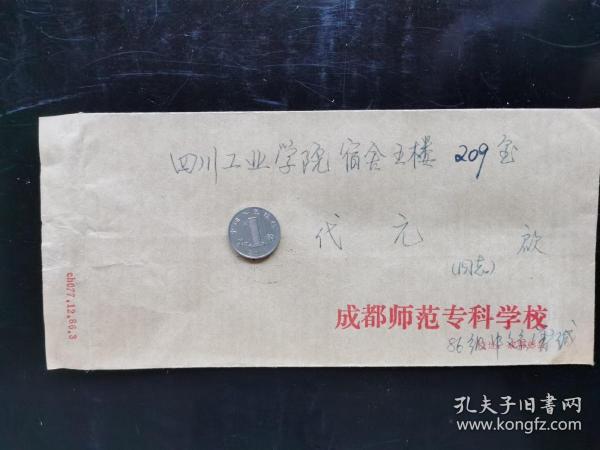 四川工业学院宿舍五楼 209室
代元 启
(同志)
成都师范专科学校
86级中文系
cb077.12.86.3
1
孔夫子旧书网
www.kongfz.com